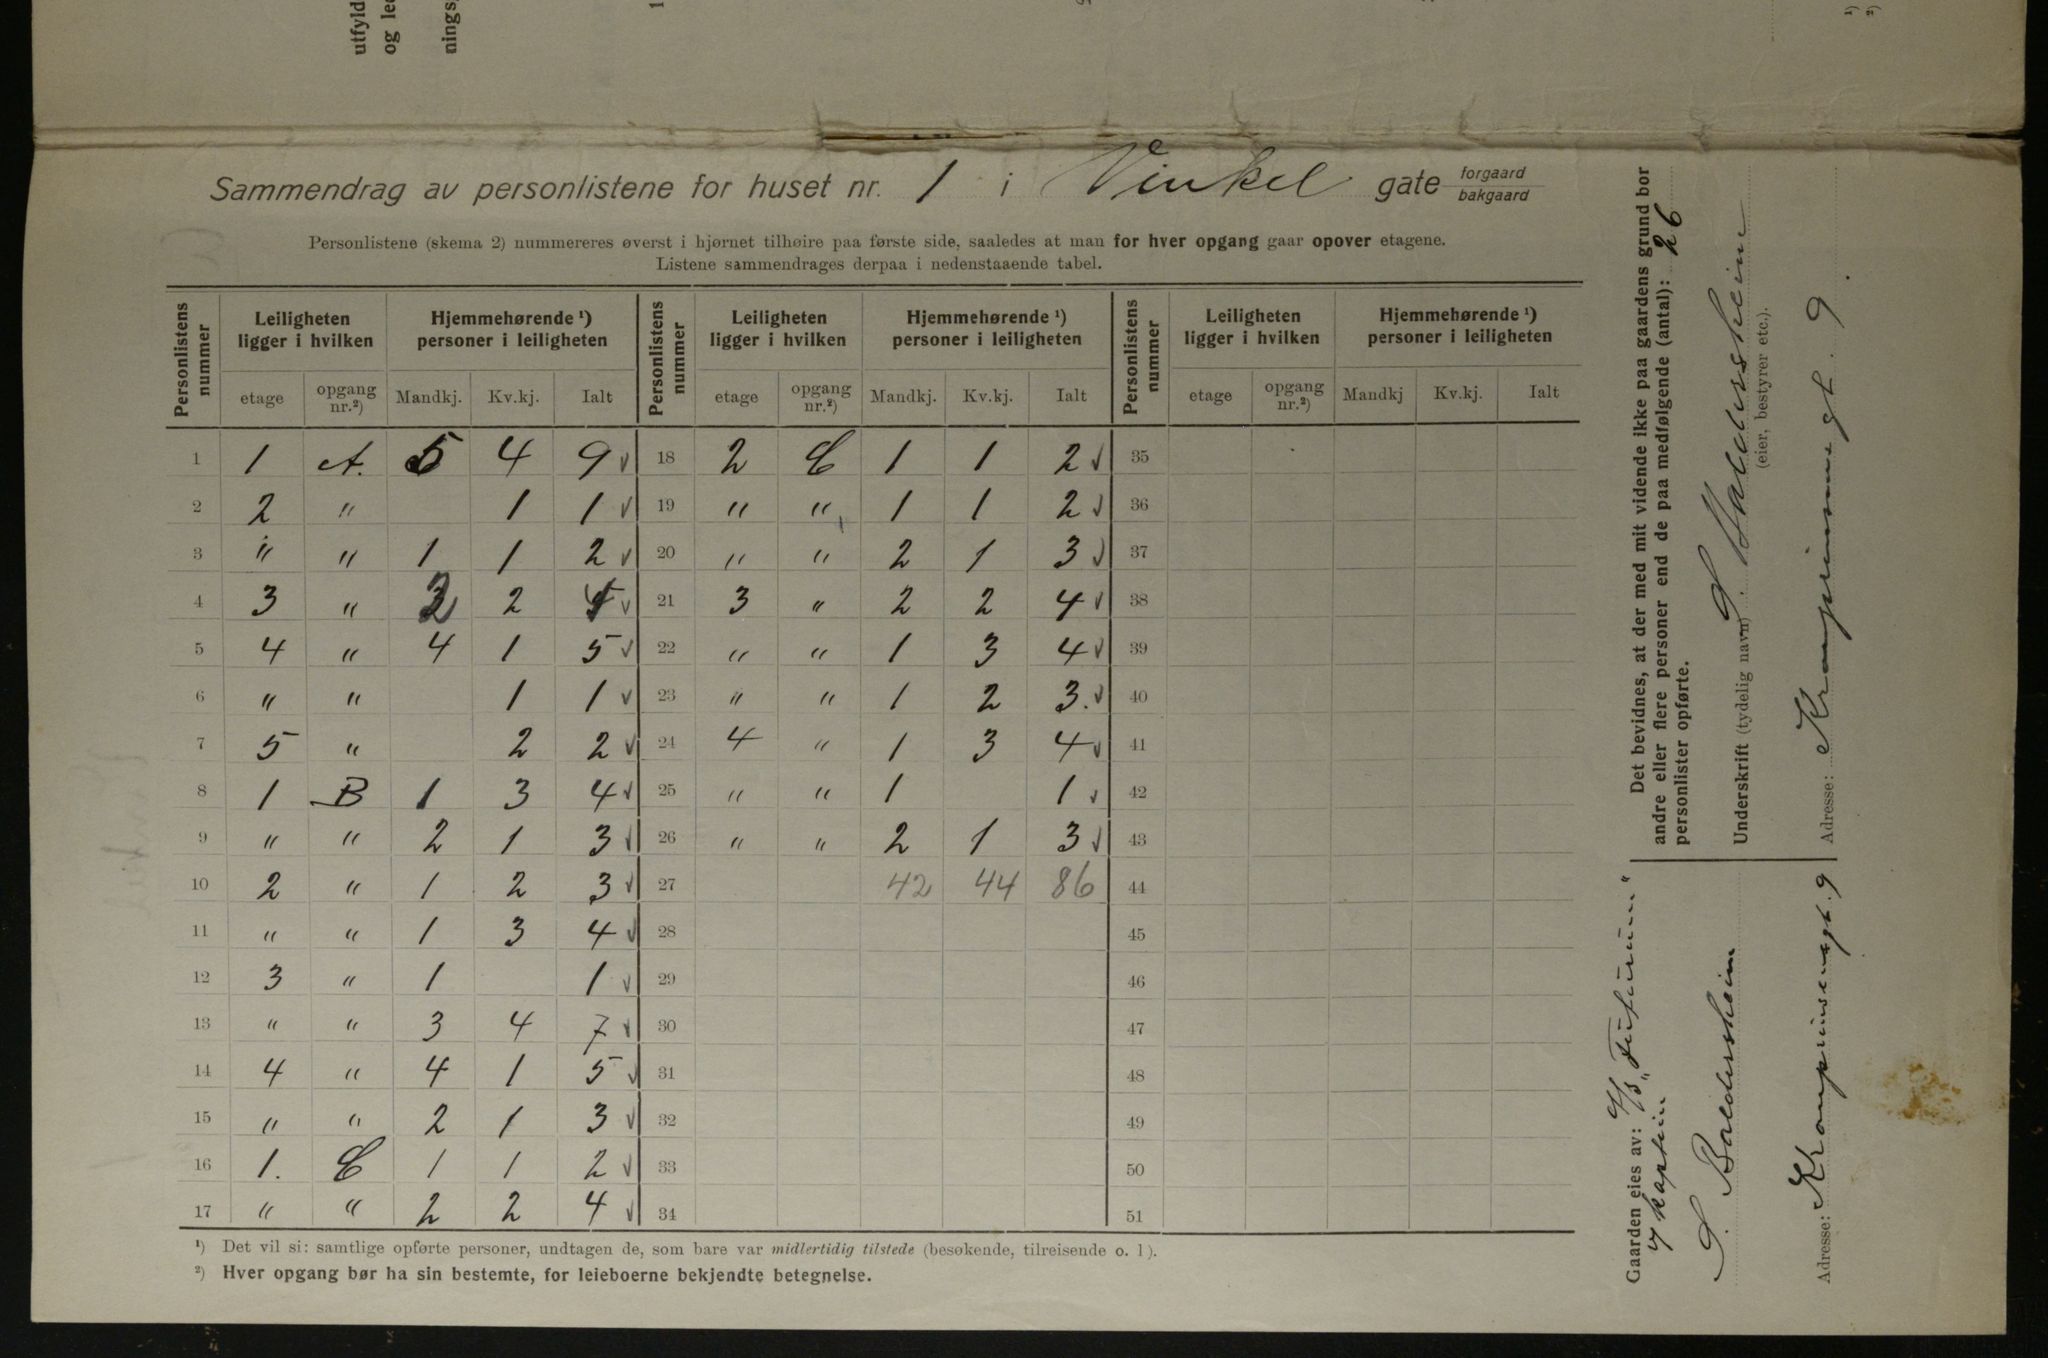 utfyld
og le
nings
1)
2)
Sammendrag av personlistene for huset nr. 1 i Vinkel gate forgaard
bakgaard
Personlistene (skema 2) nummereres øverst i hjørnet tilhøire paa første side, saaledes at man for hver opgang gaar opover etagene.
Listene sammendrages derpaa i nedenstaaende tabel.
Personlistens nummer | Leiligheten ligger i hvilken | Hjemmehørende ¹) personer i leiligheten | Personlistens nummer | Leiligheten ligger i hvilken | Hjemmehørende ¹) personer i leiligheten | Personlistens nummer | Leiligheten ligger i hvilken | Hjemmehørende ¹) personer i leiligheten
etage | opgang nr.²) | Mandkj. | Kv.kj. | Ialt | etage | opgang nr.²) | Mandkj. | Kv.kj. | Ialt | etage | opgang nr.²) | Mandkj | Kv.kj. | Ialt
1 | 1 | A. | 5 | 4 | 9 √ | 18 | 2 | C | 1 | 1 | 2 √ | 35
2 | 2 | " | | 1 | 1 √ | 19 | " | " | 1 | 1 | 2 √ | 36
3 | " | " | 1 | 1 | 2 √ | 20 | " | " | 2 | 1 | 3 √ | 37
4 | 3 | " | 2 | 2 | 4 √ | 21 | 3 | " | 2 | 2 | 4 √ | 38
5 | 4 | " | 4 | 1 | 5 √ | 22 | " | " | 1 | 3 | 4 √ | 39
6 | " | " | | 1 | 1 √ | 23 | " | " | 1 | 2 | 3. √ | 40
7 | 5 | " | | 2 | 2 √ | 24 | 4 | " | 1 | 3 | 4 √ | 41
8 | 1 | B | 1 | 3 | 4 √ | 25 | " | " | 1 | | 1 √ | 42
9 | " | " | 2 | 1 | 3 √ | 26 | " | " | 2 | 1 | 3 √ | 43
10 | 2 | " | 1 | 2 | 3 √ | 27 | | | 42 | 44 | 86 | 44
11 | " | " | 1 | 3 | 4 √ | 28 | 45
12 | 3 | " | 1 | | 1 √ | 29 | 46
13 | " | " | 3 | 4 | 7 √ | 30 | 47
14 | 4 | " | 4 | 1 | 5 √ | 31 | 48
15 | " | " | 2 | 1 | 3 √ | 32 | 49
16 | 1. | C | 1 | 1 | 2 √ | 33 | 50
17 | " | " | 2 | 2 | 4 √ | 34 | 51
¹) Det vil si: samtlige opførte personer, undtagen de, som bare var midlertidig tilstede (besøkende, tilreisende o. l).
²) Hver opgang bør ha sin bestemte, for leieboerne bekjendte betegnelse.
Det bevidnes, at der med mit vidende ikke paa gaardens grund bor
andre eller flere personer end de paa medfølgende (antal): 26
personlister opførte.
Underskrift (tydelig navn) S. Baldersheim
(eier, bestyrer etc.).
Adresse: Kronprinsensgt. 9.
Gaarden eies av: A/S „Futurum"
S. Baldersheim
Adresse: Kronprinsensgt. 9